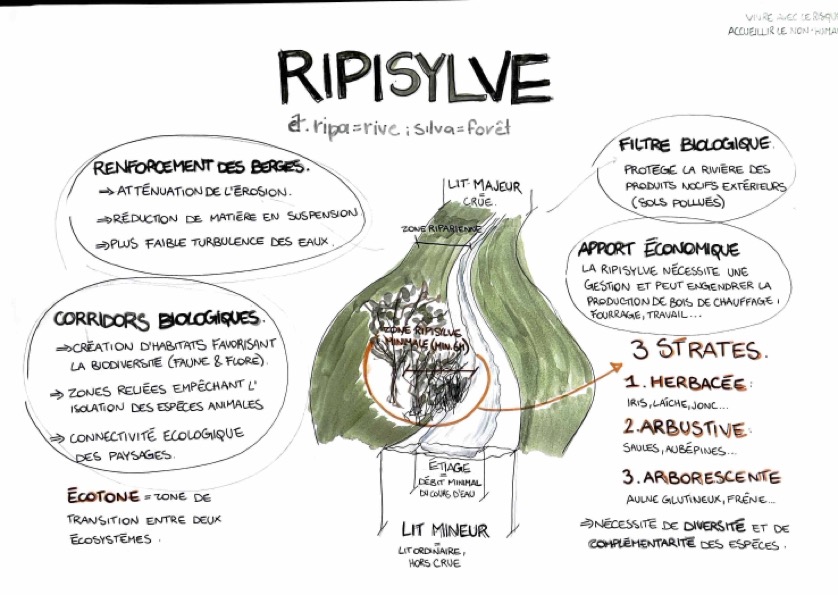 VIVRE AVEC LE RISQUE
ACCUEILLIR LE NON-HUMAIN
RIPISYLVE
ét. ripa=rive ; silva=forêt
RENFORCEMENT DES BERGES.
⇒ ATTÉNUATION DE L'ÉROSION.
⇒ RÉDUCTION DE MATIÈRE EN SUSPENSION
⇒ PLUS FAIBLE TURBULENCE DES EAUX.
CORRIDORS BIOLOGIQUES.
⇒ CRÉATION D'HABITATS FAVORISANT
LA BIODIVERSITÉ (FAUNE & FLORE).
⇒ ZONES RELIÉES EMPÊCHANT L'
ISOLATION DES ESPÈCES ANIMALES
⇒ CONNECTIVITÉ ECOLOGIQUE
DES PAYSAGES.
ÉCOTONE = ZONE DE
TRANSITION ENTRE DEUX
ÉCOSYSTÈMES.
LIT MAJEUR
=
CRUE.
ZONE RIPARIENNE
ZONE RIPISYLVE
MINIMALE (MIN. 6M)
ÉTIAGE
=
DÉBIT MINIMAL
DU COURS D'EAU
LIT MINEUR
=
LIT ORDINAIRE,
HORS CRUE
FILTRE BIOLOGIQUE.
PROTÈGE LA RIVIÈRE DES
PRODUITS NOCIFS EXTÉRIEURS
(SOLS POLLUÉS)
APPORT ÉCONOMIQUE
LA RIPISYLVE NÉCESSITE UNE
GESTION ET PEUT ENGENDRER LA
PRODUCTION DE BOIS DE CHAUFFAGE,
FOURRAGE, TRAVAIL...
3 STRATES.
1. HERBACÉE:
IRIS, LAÎCHE, JONC...
2. ARBUSTIVE:
SAULES, AUBÉPINES...
3. ARBORESCENTE
AULNE GLUTINEUX, FRÊNE...
⇒ NÉCESSITÉ DE DIVERSITÉ ET DE
COMPLÉMENTARITÉ DES ESPÈCES.